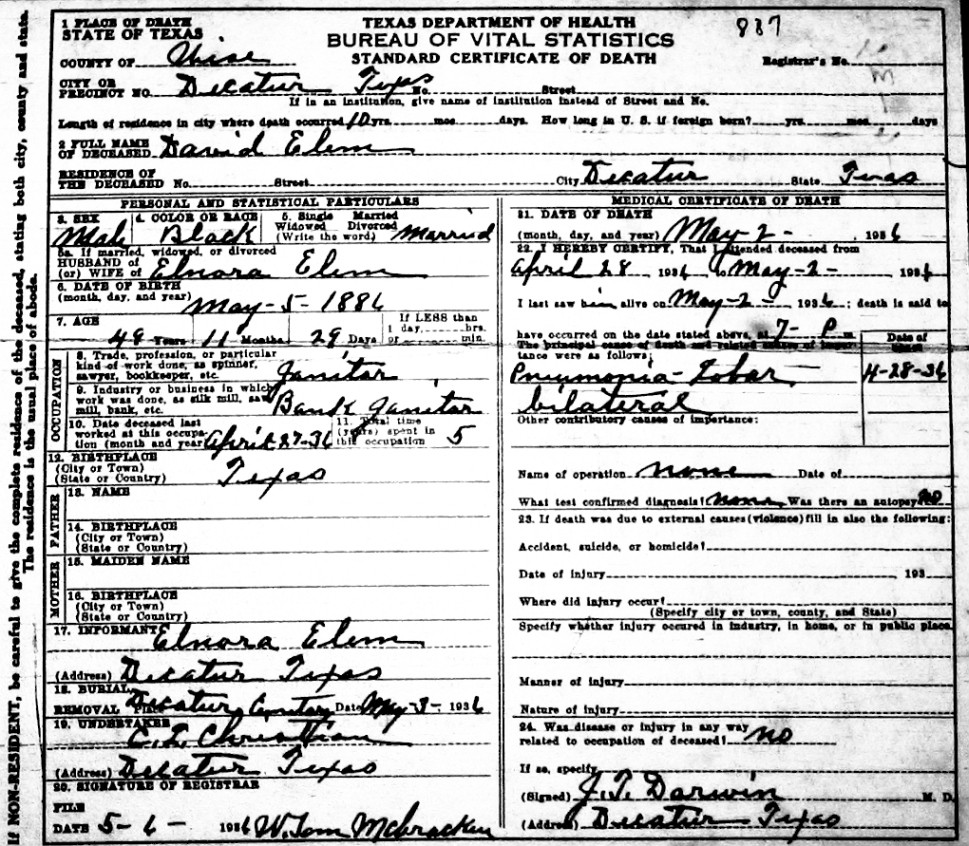 If NON-RESIDENT, be careful to give the complete residence of the deceased, stating both city, county and state.
The residence is the usual place of abode.
TEXAS DEPARTMENT OF HEALTH
BUREAU OF VITAL STATISTICS
STANDARD CERTIFICATE OF DEATH
887
Registrar's No.
1 PLACE OF DEATH
STATE OF TEXAS
COUNTY OF Wise
CITY OR PRECINCT NO. Decatur Texas No. Street
If in an institution, give name of institution instead of Street and No.
Length of residence in city where death occurred 10 yrs. mos. days. How long in U. S. if foreign born? yrs. mos. days
2 FULL NAME OF DECEASED David Elem
RESIDENCE OF THE DECEASED No. Street City Decatur State Texas
PERSONAL AND STATISTICAL PARTICULARS
3. SEX Male
4. COLOR OR RACE Black
5. Single Married Widowed Divorced (Write the word) Married
5a. If married, widowed, or divorced
HUSBAND OF (or) WIFE OF Elnora Elem
6. DATE OF BIRTH (month, day, and year) May-5-1886
7. AGE 49 Years 11 Months 29 Days
If LESS than 1 day, hrs. or min.
OCCUPATION
8. Trade, profession, or particular kind of work done, as spinner, sawyer, bookkeeper, etc. Janitor
9. Industry or business in which work was done, as silk mill, saw mill, bank, etc. Bank Janitor
10. Date deceased last worked at this occupation (month and year) April 27-36
11. Total time (years) spent in this occupation 5
12. BIRTHPLACE (City or Town) (State or Country) Texas
FATHER
13. NAME
14. BIRTHPLACE (City or Town) (State or Country)
MOTHER
15. MAIDEN NAME
16. BIRTHPLACE (City or Town) (State or Country)
17. INFORMANT Elnora Elem
(Address) Decatur Texas
18. BURIAL
REMOVAL Place Decatur Cemetary Date May-3-1936
19. UNDERTAKER C. L. Christian
(Address) Decatur Texas
20. SIGNATURE OF REGISTRAR
FILE DATE 5-6-1936 W. Tom McCracken
MEDICAL CERTIFICATE OF DEATH
21. DATE OF DEATH
(month, day, and year) May 2-, 1936
22. I HEREBY CERTIFY, That I attended deceased from
April 28 1936 to May-2-1936
I last saw him alive on May-2-1936; death is said to
have occurred on the date stated above, at 7-P m.
The principal cause of death and related causes of importance were as follows:
Date of onset
Pneumonia-Lobar 4-28-36
bilateral
Other contributory causes of importance:
Name of operation none Date of
What test confirmed diagnosis? none Was there an autopsy? no
23. If death was due to external causes (violence) fill in also the following:
Accident, suicide, or homicide?
Date of injury , 193
Where did injury occur?
(Specify city or town, county, and State)
Specify whether injury occured in industry, in home, or in public place.
Manner of injury
Nature of injury
24. Was disease or injury in any way related to occupation of deceased? no
If so, specify
(Signed) J. T. Darwin M. D.
(Address) Decatur Texas